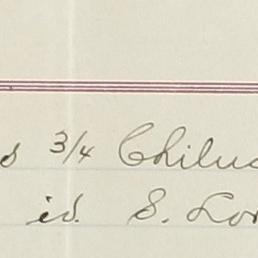 s 3/4 Chilue
id. S. Lor